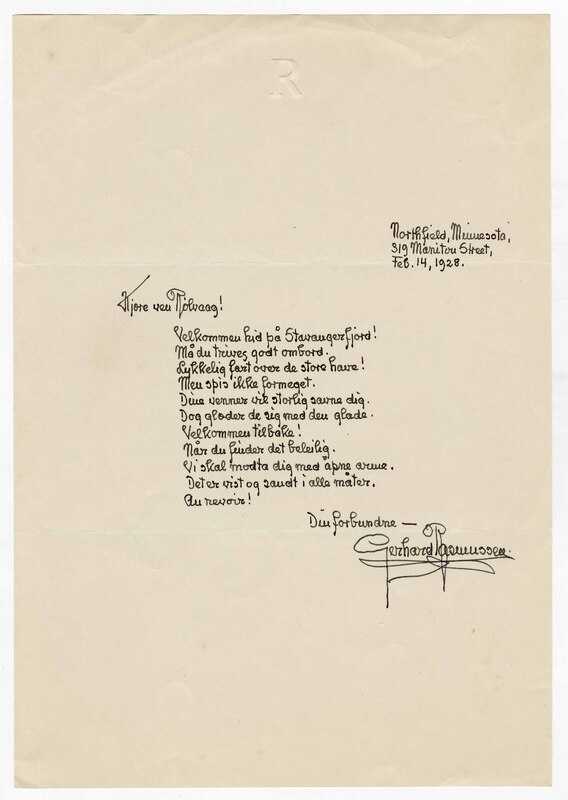 R
Northfield, Minnesota,
319 Manitou Street,
Feb. 14, 1928.
Kjære ven Rölvaag!
Velkommen hid på Stavangerfjord!
Må du trives godt ombord.
Lykkelig fart over de store have!
Men spis ikke formeget.
Dine venner vil storlig savne dig.
Dog glæder de sig med den glade.
Velkommen tilbake!
Når du finder det beleilig.
Vi skal modta dig med åpne arme.
Det er vist og sandt i alle måter.
Au revoir!
Din forbundne —
Gerhard Rasmussen.